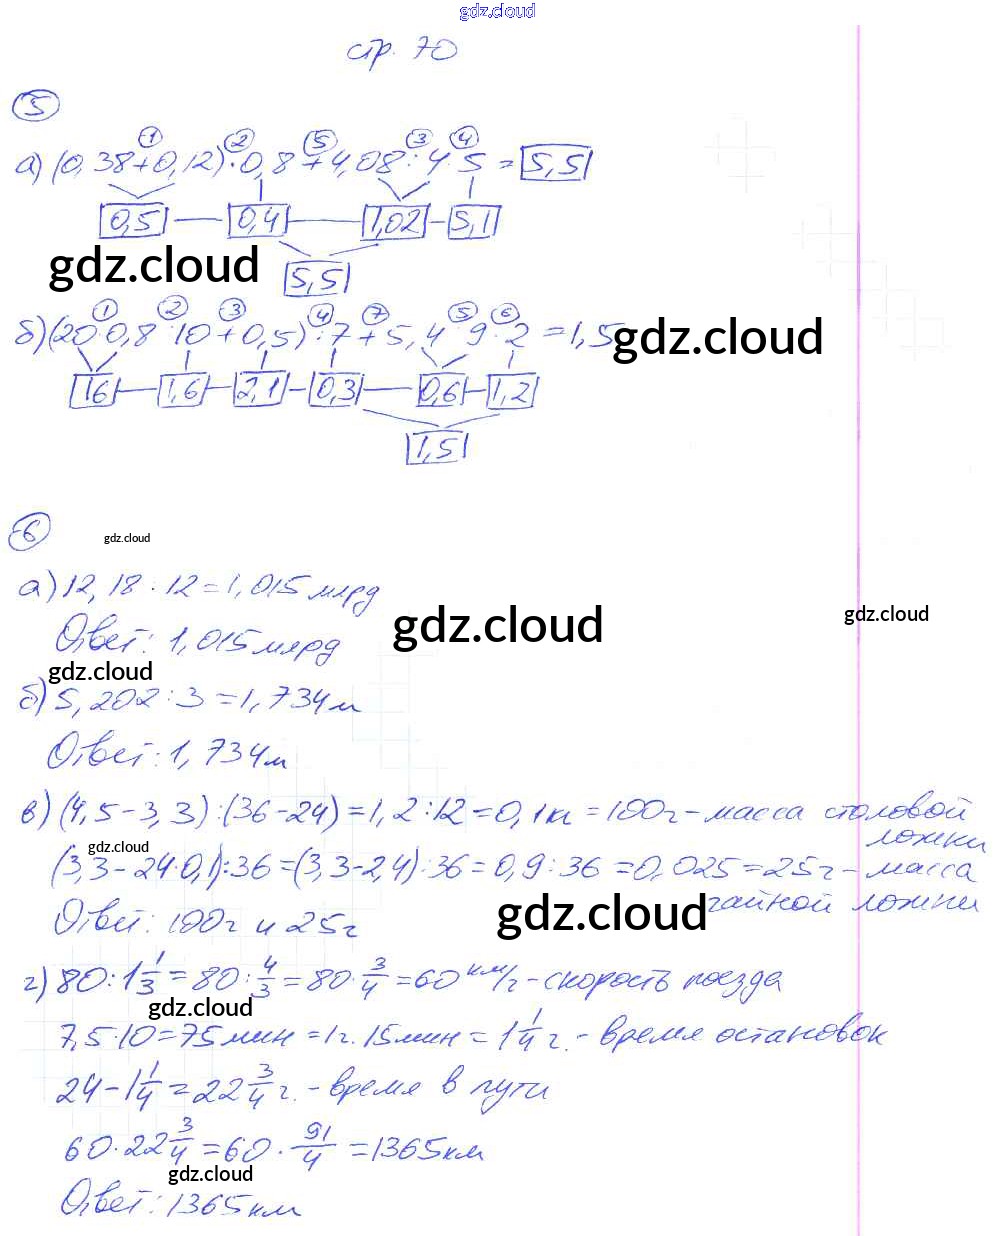 gdz.cloud
стр. 70
5
1 2 5 3 4
а) (0,38+0,12)·0,8+4,08:4·5=5,5
0,5 0,4 1,02 5,1
gdz.cloud
5,5
1 2 3 4 7 5 6
б) (20·0,8:10+0,5):7+5,4:9·2=1,5
gdz.cloud
16 1,6 2,1 0,3 0,6 1,2
1,5
6
gdz.cloud
а) 12,18:12=1,015 млрд
gdz.cloud
gdz.cloud
Ответ: 1,015 млрд
gdz.cloud
б) 5,202:3=1,734м
Ответ: 1,734м
в) (4,5-3,3):(36-24)=1,2:12=0,1кг=100г-масса столовой
ложки
gdz.cloud
(3,3-24·0,1):36=(3,3-2,4):36=0,9:36=0,025=25г-масса
чайной ложки
gdz.cloud
Ответ: 100г и 25г
г) 80:1 1/3=80:4/3=80·3/4=60 км/г-скорость поезда
gdz.cloud
7,5·10=75мин=1г.15мин=1 1/4 г.-время остановок
24-1 1/4=22 3/4 г.-время в пути
60·22 3/4=60·91/4=1365км
gdz.cloud
Ответ: 1365км